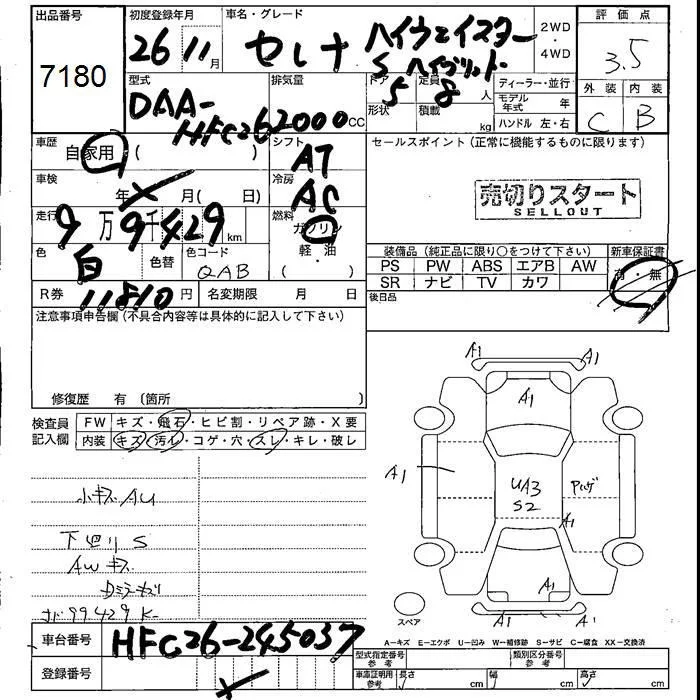 出品番号
7180
初度登録年月
26 11 月
車名・グレード
セレナ ハイウェイスター
S ハイブリット
2WD
・
4WD
評価点
3.5
外装 内装
C B
型式
DAA-
HFC26
排気量
2000cc
ドア
形状
5
定員
8人
積載
kg
ディーラー・並行
モデル年式 年
ハンドル 左・右
車歴
自家用 ( )
シフト
AT
セールスポイント (正常に機能するものに限ります)
車検
年 月( 日)
冷房
AC
売切りスタート
SELLOUT
走行
9万9千429km
燃料
ガソリン
軽・油
色
白
色替
色コード
QAB
装備品 (純正品に限り○をつけて下さい)
新車保証書
PS PW ABS エアB AW
SR ナビ TV カワ
有・無
R券
11810円
名変期限 月 日
後日品
注意事項申告欄 (不具合内容等は具体的に記入して下さい)
修復歴 有 (箇所
検査員
記入欄
FW キズ・飛石・ヒビ割・リペア跡・X要
内装 キズ・汚レ・コゲ・穴・スレ・キレ・破レ
小キズAU
下回りS
AWキズ
Dミラーキズ
99429K
A1
A1
A1
A1
UA3
S2
A1
A1
A1
A1
スペア
A-キズ E-エクボ U-凹み W-補修跡 S-サビ C-腐食 XX-交換済
車台番号
HFC26-245037
登録番号
型式指定番号
参考
類別区分番号
参考
車庫証明用
参考
長さ cm
幅 cm
高さ cm